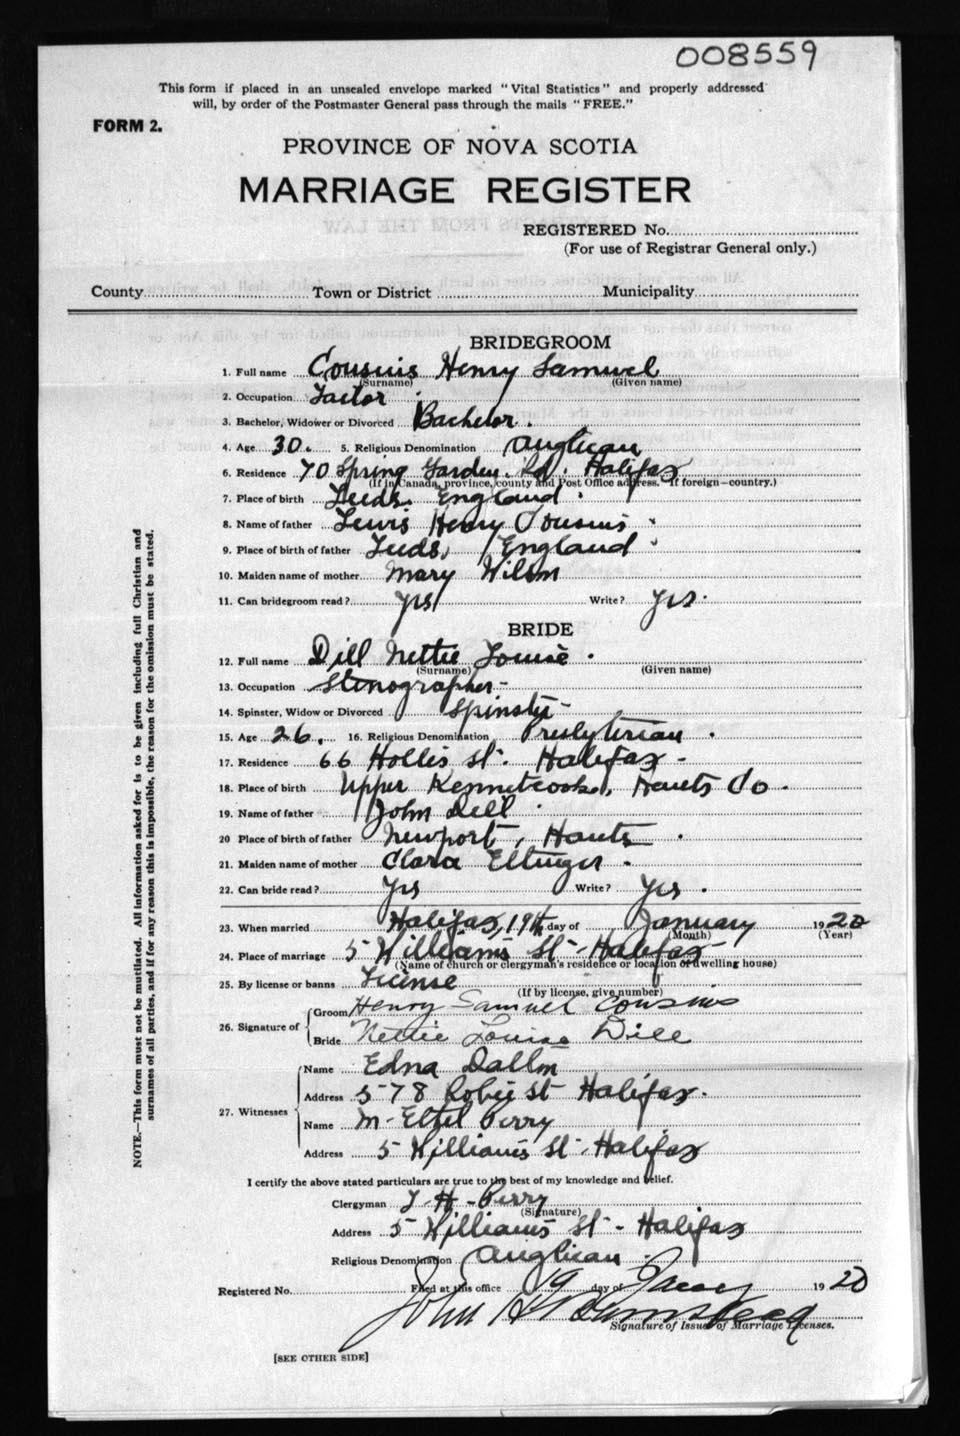 008559
This form if placed in an unsealed envelope marked "Vital Statistics" and properly addressed
will, by order of the Postmaster General pass through the mails "FREE."
FORM 2.
PROVINCE OF NOVA SCOTIA
MARRIAGE REGISTER
REGISTERED No.
(For use of Registrar General only.)
County Town or District Municipality
BRIDEGROOM
1. Full name Cousins Henry Samuel
(Surname) (Given name)
2. Occupation
3. Bachelor, Widower or Divorced Bachelor.
4. Age 30. 5. Religious Denomination Anglican
6. Residence 70 Spring Garden Rd. Halifax
(If in Canada, province, county and Post Office address. If foreign—country.)
7. Place of birth Leeds England.
8. Name of father Lewis Henry Cousins
9. Place of birth of father Leeds, England
10. Maiden name of mother Mary Wilson
11. Can bridegroom read? Yes Write? Yes.
BRIDE
12. Full name Dill Nettie Louise.
(Surname) (Given name)
13. Occupation Stenographer-
14. Spinster, Widow or Divorced Spinster-
15. Age 26. 16. Religious Denomination Presbyterian.
17. Residence 66 Hollis St. Halifax-
18. Place of birth Upper Kennetcook, Hants Co.
19. Name of father John Dill.
20 Place of birth of father Newport, Hants.
21. Maiden name of mother Clara Ettinger.
22. Can bride read? Yes Write? Yes.
23. When married Halifax, 19th day of January 1920
(Month) (Year)
24. Place of marriage 5 Williams St- Halifax-
(Name of church or clergyman's residence or location of dwelling house)
25. By license or banns License
(If by license, give number)
26. Signature of Groom Henry Samuel Cousins
Bride Nettie Louise Dill
27. Witnesses
Name Edna
Address 578 Robie St Halifax.
Name M. Ethel Perry
Address 5 Williams St. Halifax
I certify the above stated particulars are true to the best of my knowledge and belief.
Clergyman H. Perry
(Signature)
Address 5 Williams St- Halifax
Religious Denomination Anglican.
Registered No. Filed at this office 19 day of 1920
John
Signature of Issuer of Marriage Licenses.
[SEE OTHER SIDE]
NOTE.—This form must not be mutilated. All information asked for is to be given including full Christian and
surnames of all parties, and if for any reason this is impossible, the reason for the omission must be stated.